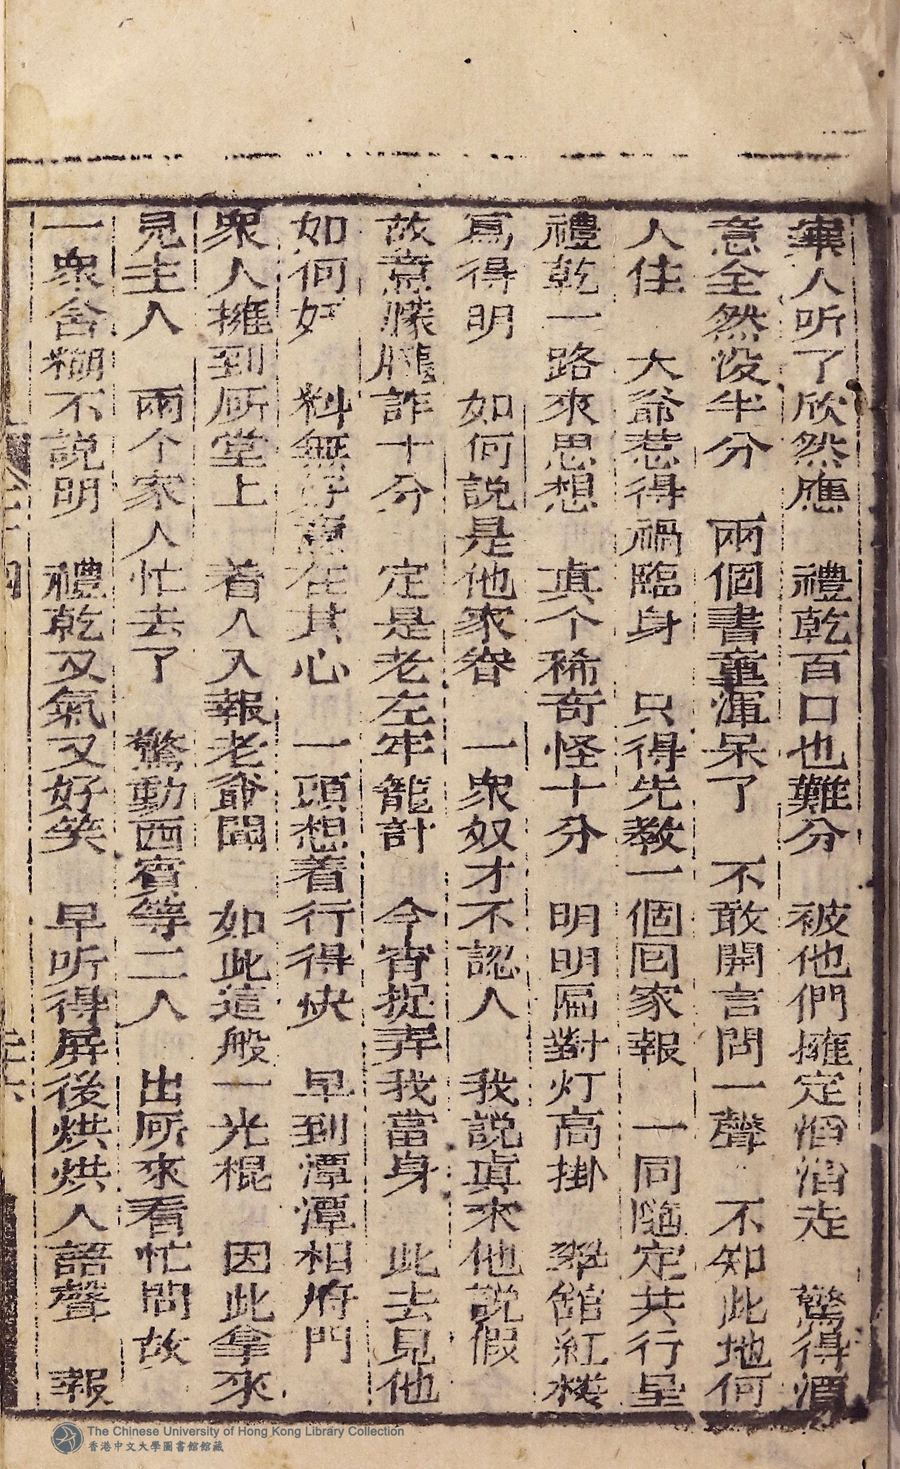 衆人听了欣然應　禮乾百口也難分　被他們擁定滔滔走　驚得酒
意全然没半分　兩個書童渾呆了　不敢開言問一聲　不知此地何
人住　大爺惹得禍臨身　只得先教一個囘家報　一同隨定共行呈
禮乾一路來思想　真个稀奇怪十分　明明隔對灯高掛　翠館紅楼
爲得明　如何説是他家眷　一衆奴才不認人　我説真來他説假
故意朦朧詐十分　定是老左牢籠計　今宵捉弄我當身　此去見他
如何好　料無好意在其心　一頭想着行得快　早到潭潭相府門
衆人擁到厛堂上　着人入報老爺聞　如此這般一光棍　因此拿來
見主人　兩个家人忙去了　驚動西賓等二人　出厛來看忙問故
一衆含糊不説明　禮乾又氣又好笑　早听得屏後烘烘人語聲　報
卷二十四
二十六
The Chinese University of Hong Kong Library Collection
香港中文大學圖書館館藏